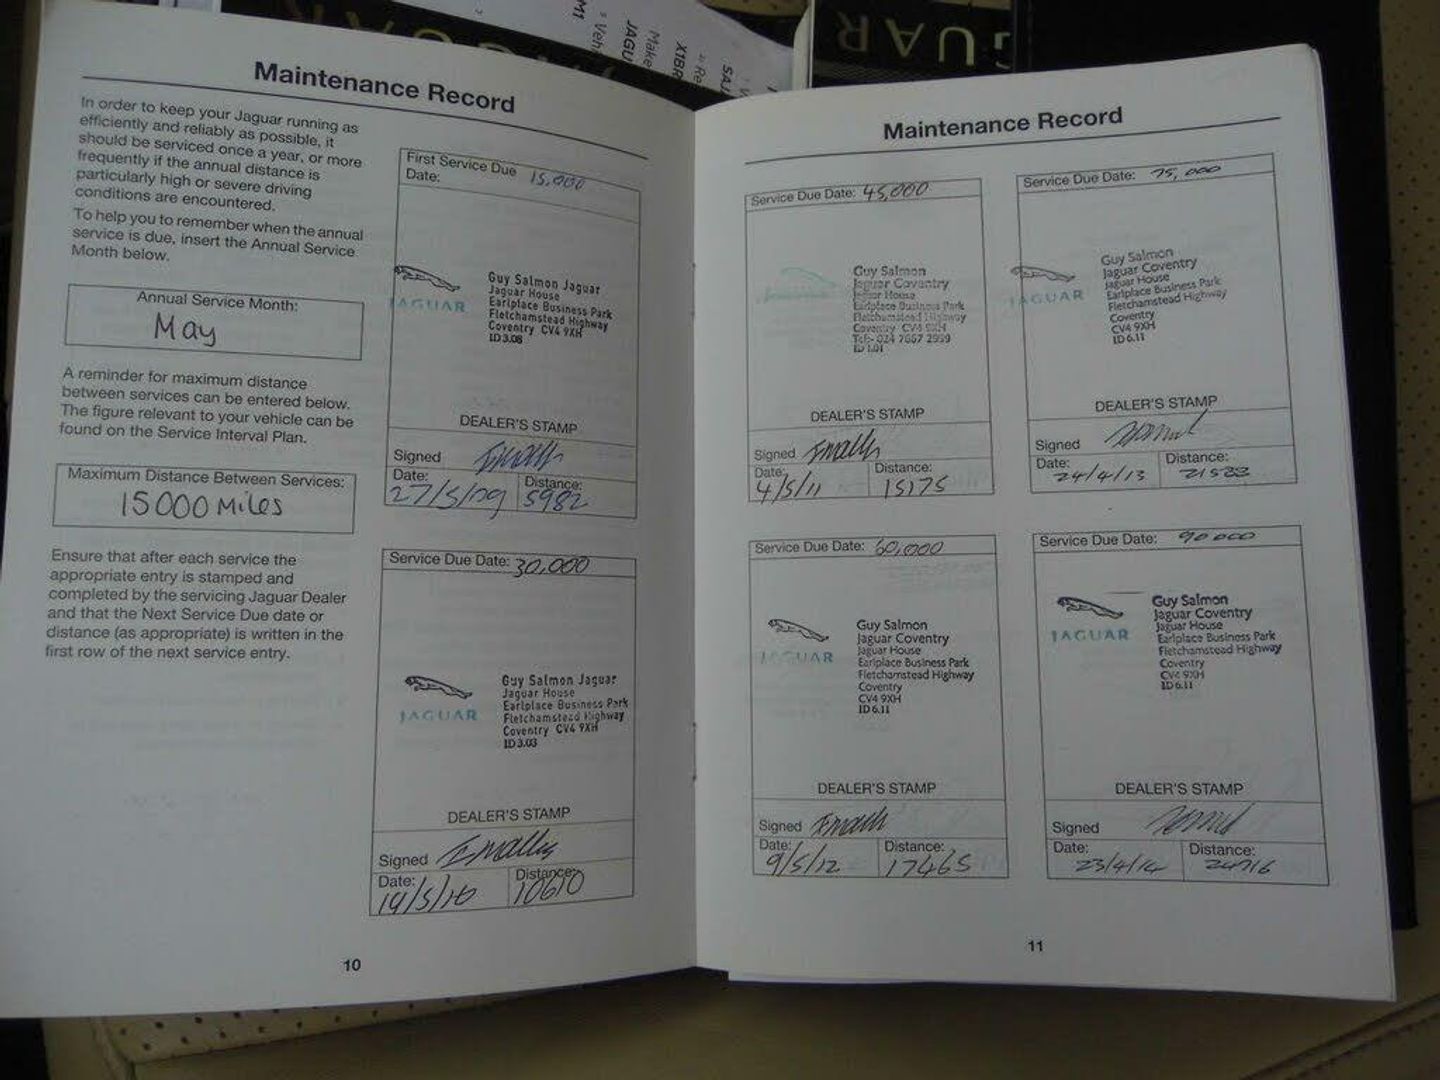 JAGUAR
Maintenance Record
In order to keep your Jaguar running as
efficiently and reliably as possible, it
should be serviced once a year, or more
frequently if the annual distance is
particularly high or severe driving
conditions are encountered.
To help you to remember when the annual
service is due, insert the Annual Service
Month below.
Annual Service Month:
May
A reminder for maximum distance
between services can be entered below.
The figure relevant to your vehicle can be
found on the Service Interval Plan.
Maximum Distance Between Services:
15000 MiLes
Ensure that after each service the
appropriate entry is stamped and
completed by the servicing Jaguar Dealer
and that the Next Service Due date or
distance (as appropriate) is written in the
first row of the next service entry.
First Service Due 15,000
Date:
JAGUAR
Guy Salmon Jaguar
Jaguar House
Earlplace Business Park
Fletchamstead Highway
Coventry CV4 9XH
ID 3.08
DEALER'S STAMP
Signed
Date: Distance:
27/5/09 5982
Service Due Date: 30,000
JAGUAR
Guy Salmon Jaguar
Jaguar House
Earlplace Business Park
Fletchamstead Highway
Coventry CV4 9XH
ID 3.03
DEALER'S STAMP
Signed
Date: Distance:
19/5/10 10610
10
Maintenance Record
Service Due Date: 45,000
Guy Salmon
Jaguar Coventry
Jaguar House
Earlplace Business Park
Fletchamstead Highway
Coventry CV4 9XH
DEALER'S STAMP
Signed
Date: Distance:
4/5/11 15175
Service Due Date: 60,000
JAGUAR
Guy Salmon
Jaguar Coventry
Jaguar House
Earlplace Business Park
Fletchamstead Highway
Coventry
CV4 9XH
ID 6.11
DEALER'S STAMP
Signed
Date: Distance:
9/5/12 17465
Service Due Date: 75,000
JAGUAR
Guy Salmon
Jaguar Coventry
Jaguar House
Earlplace Business Park
Fletchamstead Highway
Coventry
CV4 9XH
ID 6.11
DEALER'S STAMP
Signed
Date: Distance:
24/4/13 21583
Service Due Date: 90000
JAGUAR
Guy Salmon
Jaguar Coventry
Jaguar House
Earlplace Business Park
Fletchamstead Highway
Coventry
CV4 9XH
ID 6.11
DEALER'S STAMP
Signed
Date: Distance:
23/4/14 24716
11